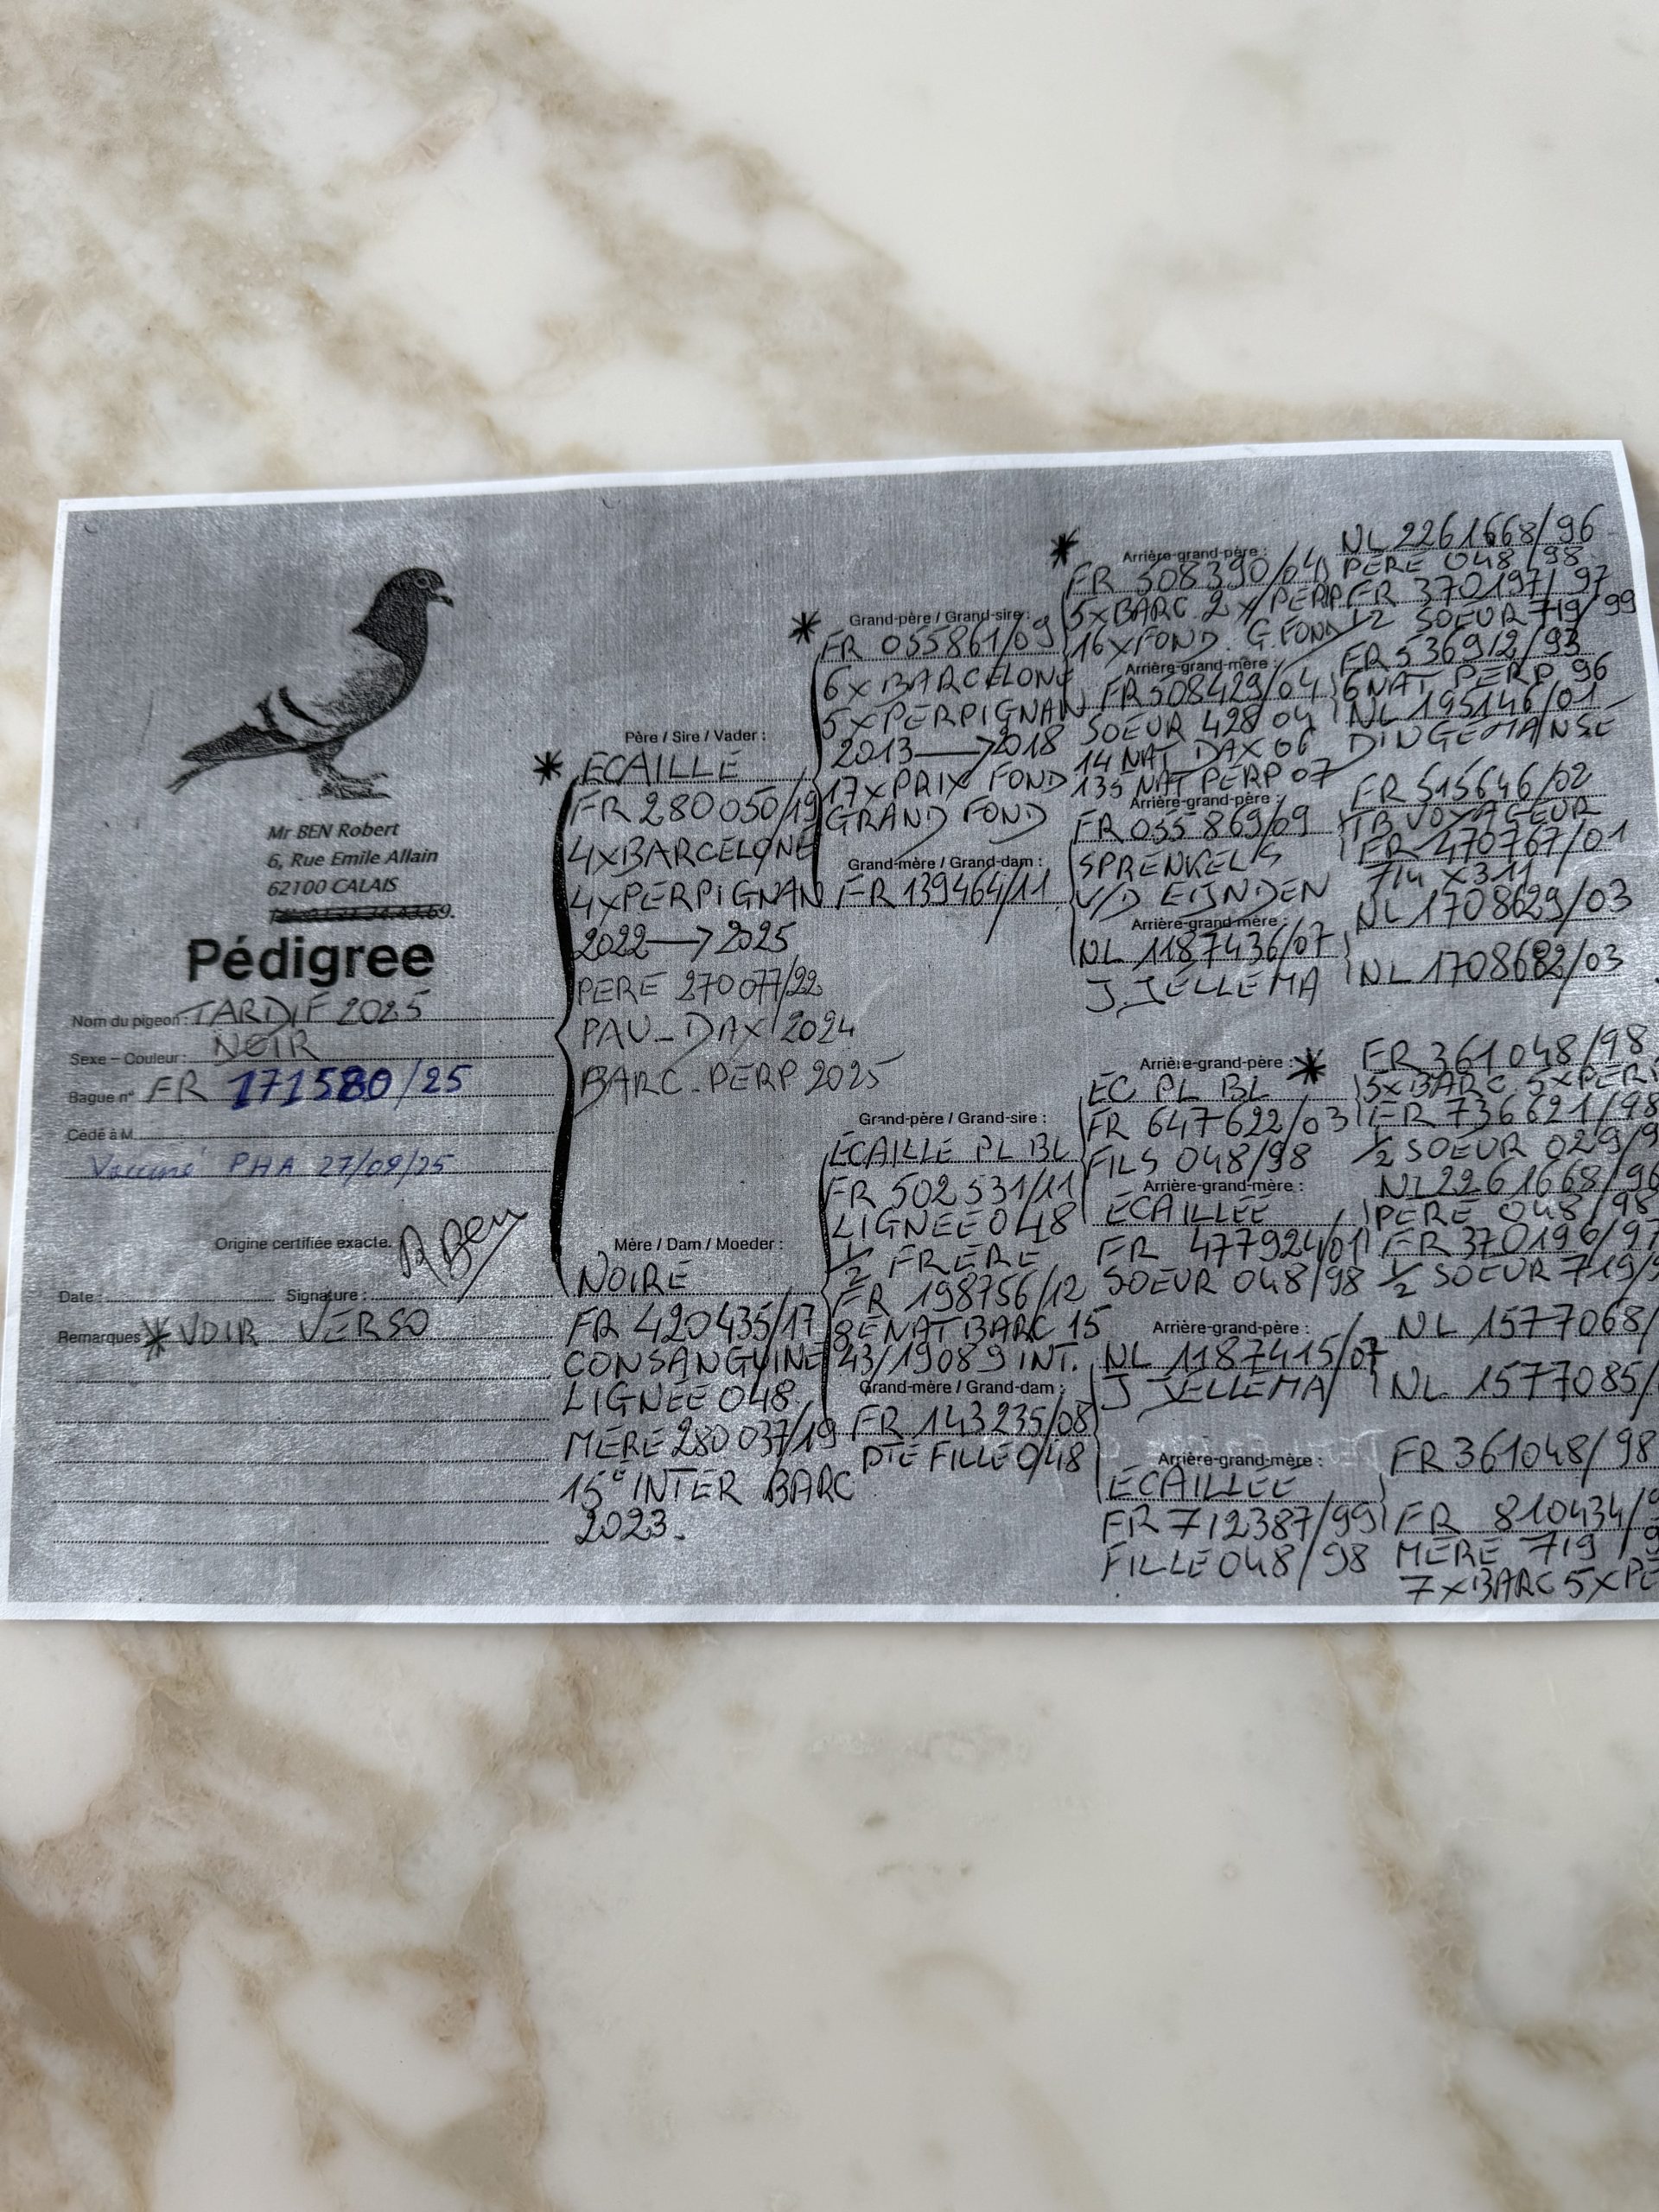 Mr BEN Robert
6, Rue Emile Allain
62100 CALAIS
Pédigree
Nom du pigeon : TARDIF 2025
Sexe – Couleur : NOIR
Bague n° FR 171580/25
Cédé à M.
Vacciné PHA 27/09/25
Origine certifiée exacte. R Ben
Date : Signature :
Remarques * VOIR VERSO
Père / Sire / Vader :
* ECAILLÉ
FR 280050/19
4xBARCELONE
4xPERPIGNAN
2022 → 2025
PERE 270077/22
PAU_DAX 2024
BARC_PERP 2025
Mère / Dam / Moeder :
NOIRE
FR 420435/17
CONSANGUINE
LIGNÉE 048
MÈRE 280037/19
15È INTER BARC
2023.
Grand-père / Grand-sire :
* FR 055861/09
6xBARCELONE
5xPERPIGNAN
2013 → 2018
17xPRIX FOND
GRAND FOND
Grand-mère / Grand-dam :
FR 139464/11
Grand-père / Grand-sire :
ÉCAILLE PL BL
FR 502531/11
LIGNÉE 048
1/2 FRERE
FR 198756/12
8È NAT BARC 15
43/19089 INT.
Grand-mère / Grand-dam :
FR 143235/08
PTE FILLE 048
Arrière-grand-père :
* FR 508390/04
5xBARC. 2xPERP
16xFOND. G.FOND
Arrière-grand-mère :
FR 508429/04
SOEUR 428 04
14 NAT DAX 06
135 NAT PERP 07
Arrière-grand-père :
FR 055869/09
SPRENKELS
V/D EIJNDEN
Arrière-grand-mère :
NL 1187436/07
J.JELLEMA
Arrière-grand-père :
EC PL BL
FR 647622/03
FILS 048/98
Arrière-grand-mère :
ÉCAILLÉE
FR 477924/01
SOEUR 048/98
Arrière-grand-père :
NL 1187415/07
J JELLEMA
Arrière-grand-mère :
ÉCAILLÉE
FR 712387/99
FILLE 048/98
NL 2261668/96
PERE 048/98
FR 370197/97
1/2 SOEUR 719/99
FR 536912/93
6 NAT PERP 96
NL 195146/01
DINGEMANSE
FR 515646/02
TB VOYAGEUR
FR 470767/01
714 X 311
NL 1708629/03
NL 1708682/03
* FR 361048/98
5xBARC 5xPER
FR 736621/98
1/2 SOEUR 029/9
NL 2261668/96
PERE 048/98
FR 370196/97
1/2 SOEUR 719/9
NL 1577068/
NL 1577085/
FR 361048/98
FR 810434/9
MÈRE 719/9
7xBARC 5xPE